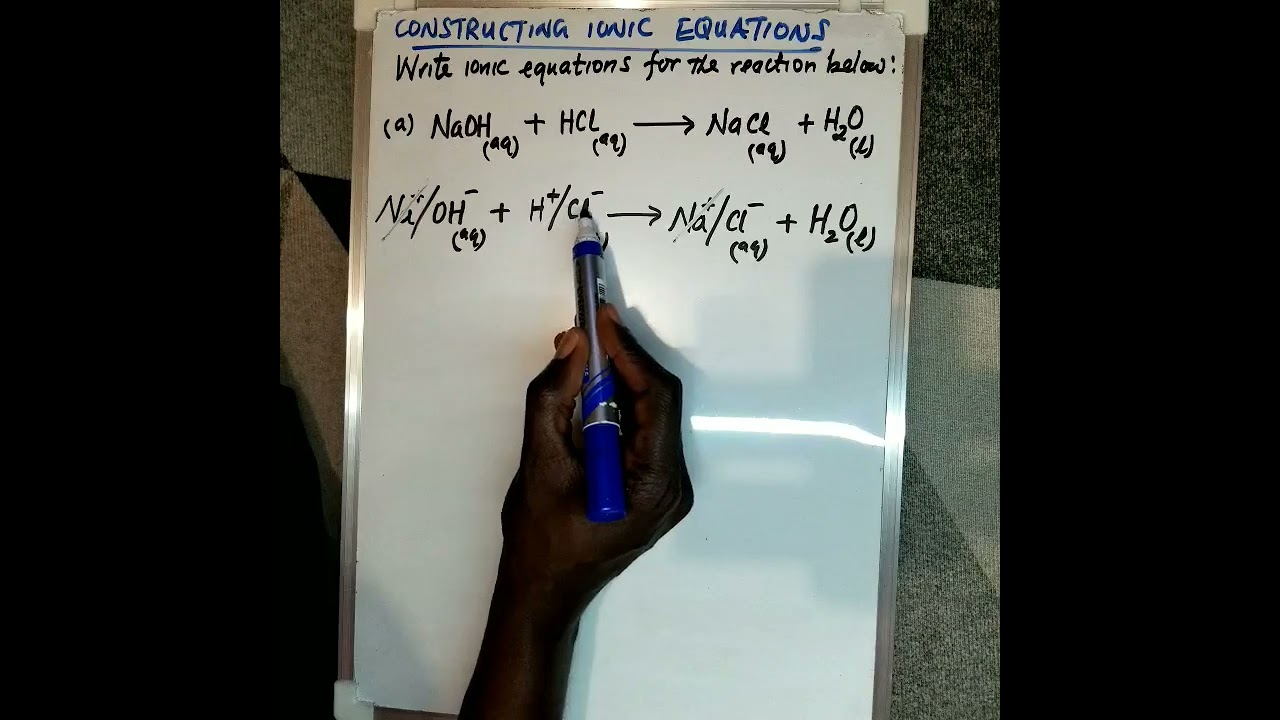 CONSTRUCTING IONIC EQUATIONS
Write ionic equations for the reaction below:
(a) NaOH(aq) + HCl(aq) → NaCl(aq) + H₂O(l)
Na⁺/OH⁻(aq) + H⁺/Cl⁻ → Na⁺/Cl⁻(aq) + H₂O(l)